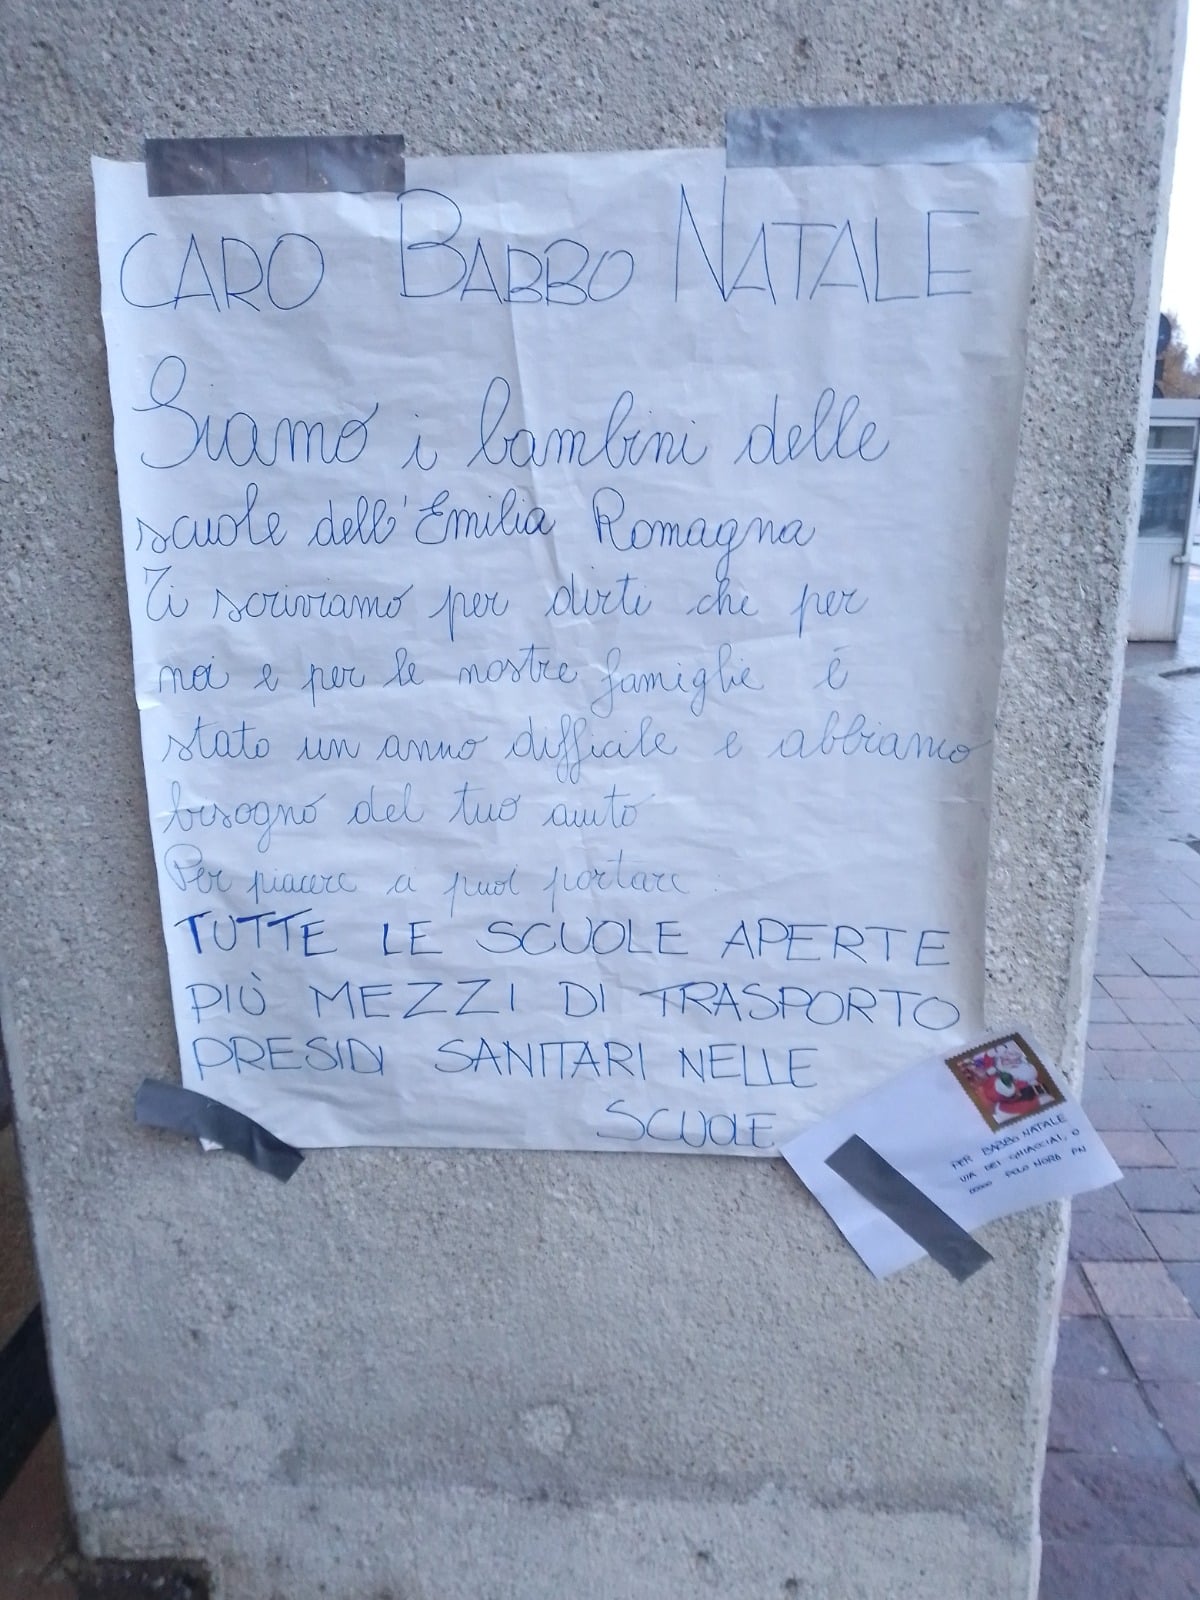 CARO BABBO NATALE
Siamo i bambini delle
scuole dell'Emilia Romagna
Ti scriviamo per dirti che per
noi e per le nostre famiglie è
stato un anno difficile e abbiamo
bisogno del tuo aiuto
Per piacere ci puoi portare:
TUTTE LE SCUOLE APERTE
PIÙ MEZZI DI TRASPORTO
PRESIDI SANITARI NELLE
SCUOLE
PER BABBO NATALE
VIA DEI GHIACCIAI, 0
00000 POLO NORD PN